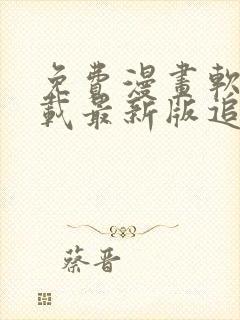 免費漫畫軟
載最新版追
蔡晋